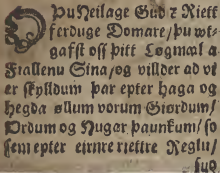 Þu Heilage Gud z Riett
ferduge Domare/þu wt-
gafst oss þitt Løgmæl a
Fiallenu Sina/og villder ad vi-
er skylldum þar epter haga og
hegda øllum vorum Giørdum/
Ordum og Hugar þaunkum/so
sem epter eirnre riettre Reglu/